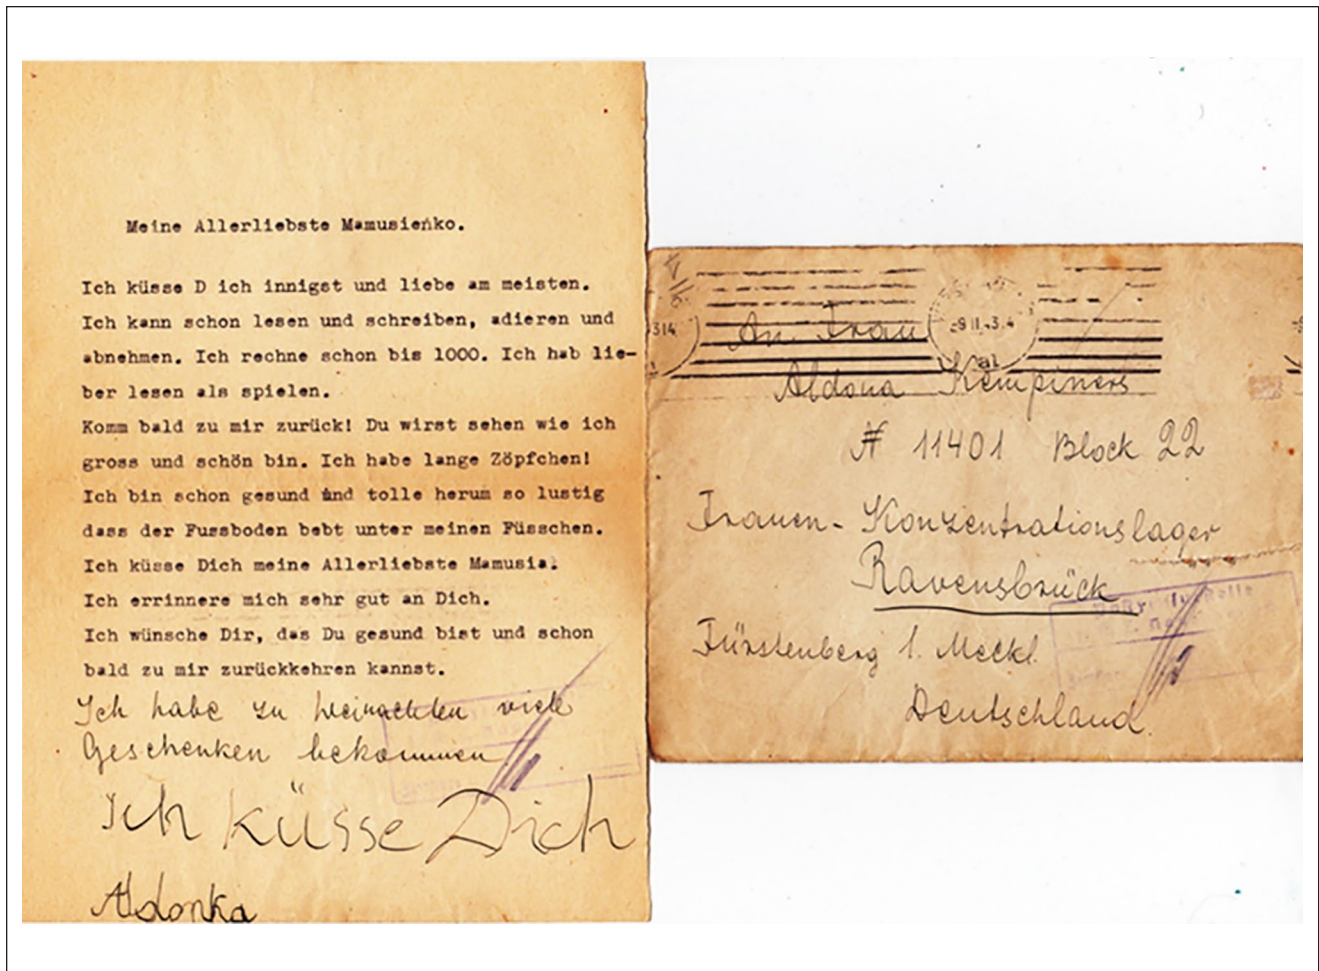 Meine Allerliebste Mamusieńko.
Ich küsse D ich innigst und liebe am meisten.
Ich kann schon lesen und schreiben, adieren und
abnehmen. Ich rechne schon bis 1000. Ich hab lie-
ber lesen als spielen.
Komm bald zu mir zurück! Du wirst sehen wie ich
gross und schön bin. Ich habe lange Zöpfchen!
Ich bin schon gesund und tolle herum so lustig
dass der Fussboden bebt unter meinen Füsschen.
Ich küsse Dich meine Allerliebste Mamusia!
Ich errinnere mich sehr gut an Dich.
Ich wünsche Dir, das Du gesund bist und schon
bald zu mir zurückkehren kannst.
Ich habe zu Weinachten viele
Geschenken bekommen
Ich küsse Dich
Aldonka
An Frau
Aldona Kempiners
# 11401 Block 22
Frauen-Konzentrationslager
Ravensbrück
Fürstenberg i. Meckl.
Deutschland